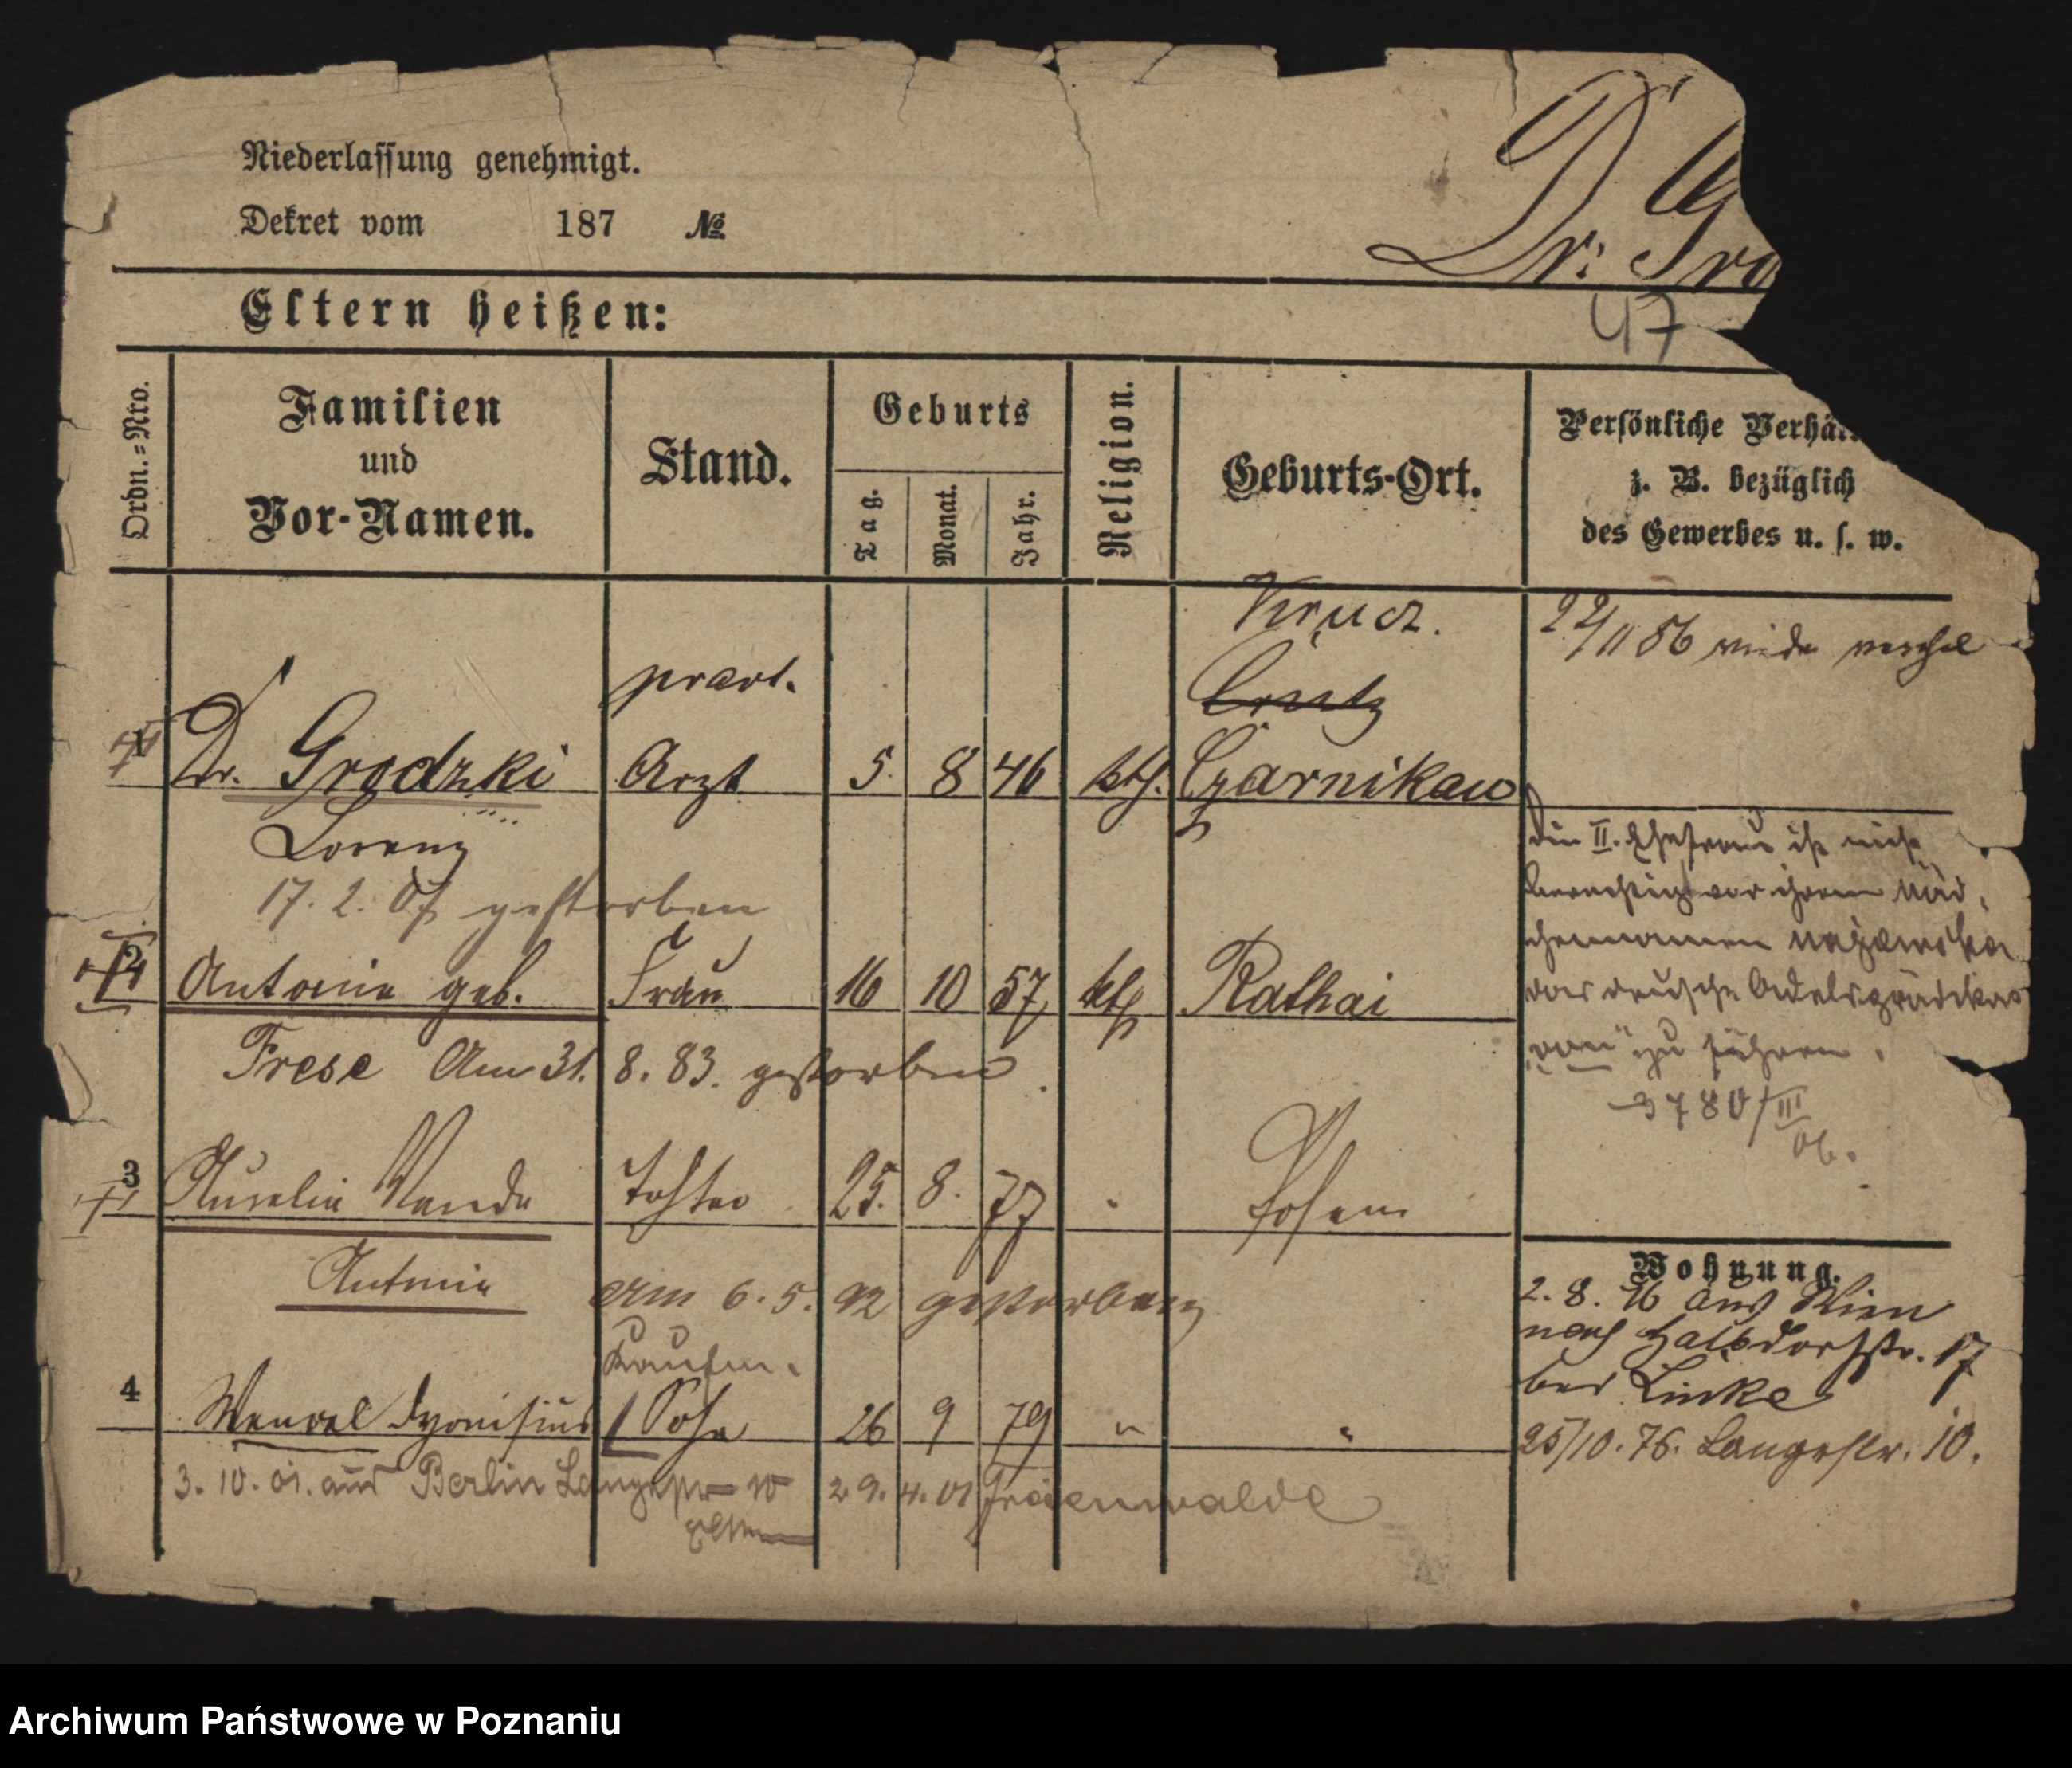 Niederlassung genehmigt.
Dekret vom 187 №
Dr. Gro
47
Eltern heißen:
Ordn.=Nro.
Familien
und
Vor-Namen.
Stand.
Geburts
Tag.
Monat.
Jahr.
Religion.
Geburts-Ort.
Persönliche Verhä
z. B. bezüglich
des Gewerbes u. s. w.
Krucz.
pract.
1 Dr. Grodzki Arzt 5. 8 46 kth. Czarnikau
Lorenz
17. 2. 07 gestorben
2 Antonie geb. Frau 16 10 57 kth Rathai
Frese Am 31. 8. 83. gestorben.
3 Aurelia Wanda Tochter 25. 8. 77 " Posen
Antonie Am 6. 5. 92 gestorben
Kaufm.
4 Wenzel Dyonisius Sohn 26 9 79 " "
3. 10. 01. aus Berlin Langestr 10 29. 4. 01 Freienwalde
die II. Ehefrau ist nicht
berechtigt vor ihrem Mäd-
chennamen
das deutsche Adelsprädikat
"von" zu führen.
3780/III
06.
Wohnung.
2. 8. 76 aus Wien
nach Halbdorfstr. 17
bei Linke
25/10. 76. Langestr. 10.
Archiwum Państwowe w Poznaniu